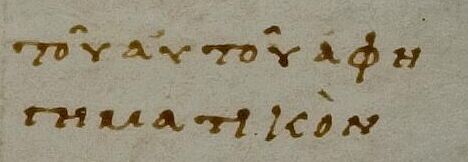 τοῦ αὐτοῦ ἀφη
γηματικὸν